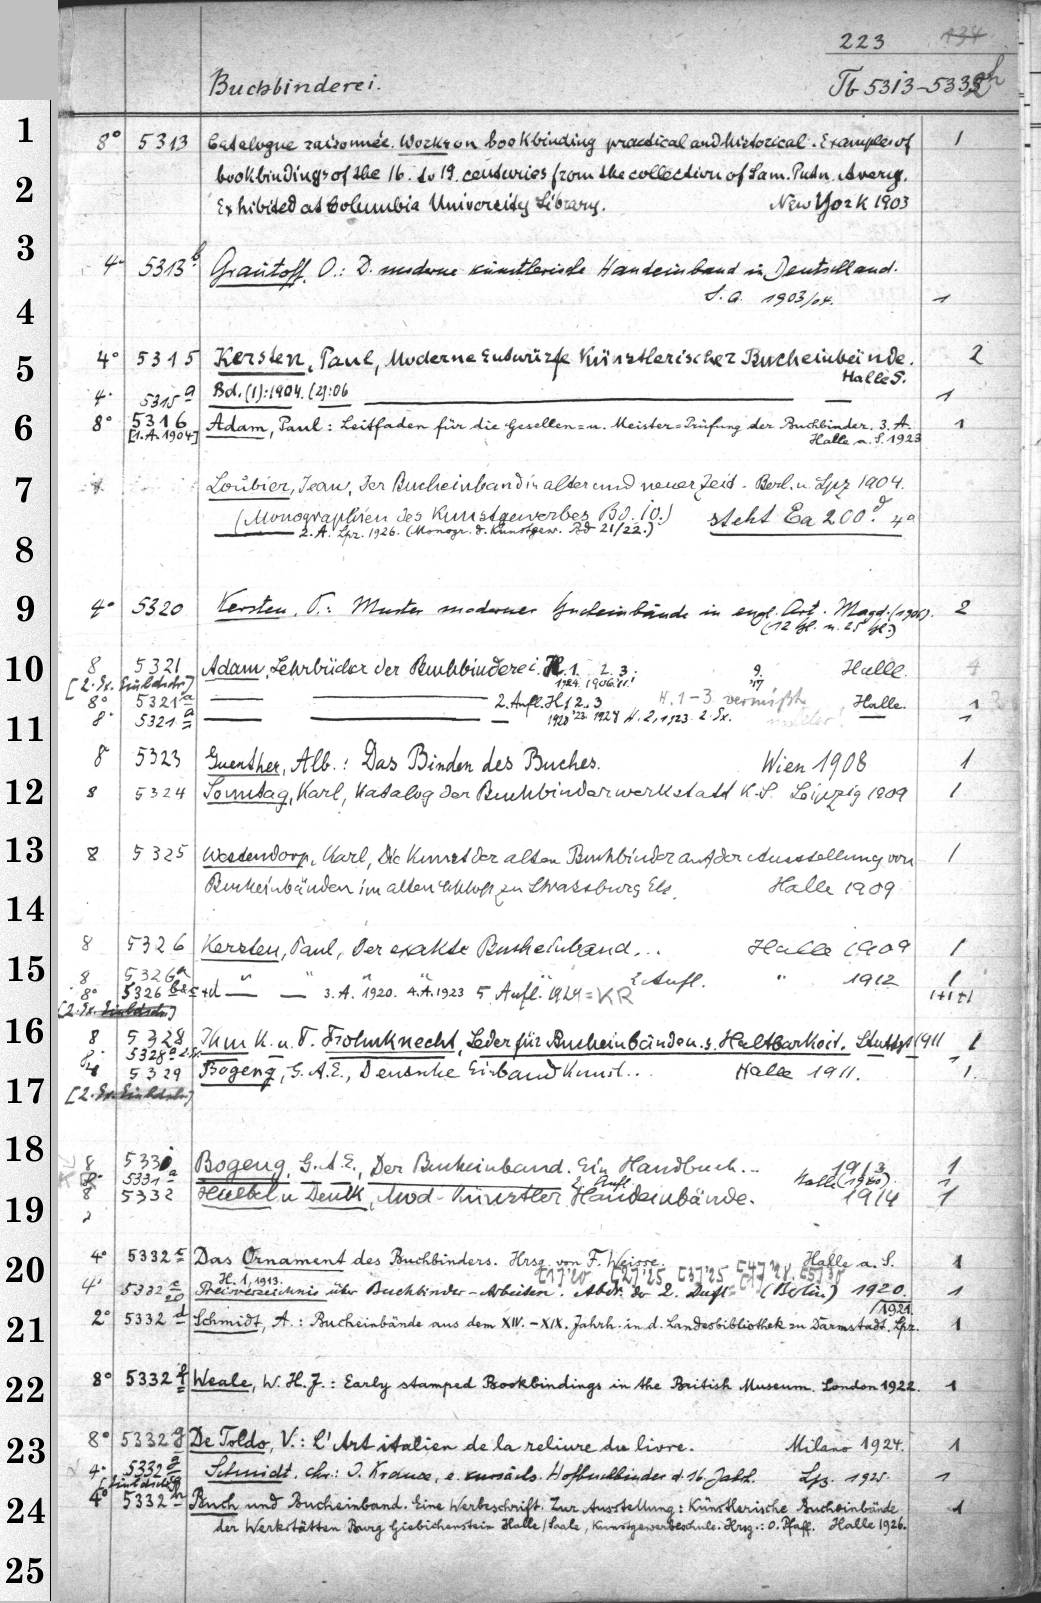 223 134
Buchbinderei. Tb 5313-5332h
1
8° 5313 Catalogue raisonnée. Works on bookbinding practical and historical. Examples of 1
2
bookbindings of the 16. to 19. centuries from the collection of Sam. Putn. Avery.
Exhibited at Columbia University Library. New York 1903
3
4° 5313 b Grautoff, O.: D. moderne künstlerische Handeinband in Deutschland.
S. a. 1903/04. 1
4
5
4° 5315 Kersten, Paul, Moderne Entwürfe Künstlerischer Bucheinbände. 2
Halle S.
4° 5315 a Bd. (1):1904. (2):06 1
6
8° 5316 Adam, Paul: Leitfaden für die Gesellen= u. Meister=Prüfung der Buchbinder. 3. A. 1
[1. A. 1904] Halle a. S. 1923
7
Loubier, Jean, Der Bucheinband in alter und neuer Zeit. Berl. u. Lpz 1904.
(Monographien des Kunstgewerbes Bd. 10.) steht Ea 200 d. 4°
2. A. Lpz. 1926. (Monogr. d. Kunstgew. Bd 21/22.)
8
9
4° 5320 Kersten, P.: Muster moderner Bucheinbände in engl. Art. Magd. (1906). 2
(12 Bl. u. 25 Bl.)
10
8 5321 Adam, Lehrbücher der Buchbinderei. H. 1. 2. 3. 9. Halle. 4
[2. Ex. Einbdschr.] 1924. 1906. 11. '17
8° 5321 a 2. Aufl. H. 1 2. 3 H. 1-3 vermißt Halle. 1
8° 5321 a 1920 '23. 1924 H. 2, 1923. 2. Ex. 1
11
8 5323 Guenther, Alb.: Das Binden des Buches. Wien 1908 1
12
8 5324 Sonntag, Karl, Katalog der Buchbinderwerkstatt K. S. Leipzig 1909 1
13
8 5325 Westendorp, Karl, Die Kunst der alten Buchbinder auf der Ausstellung von 1
Bucheinbänden im alten Schloß zu Strassburg Els. Halle 1909
14
8 5326 Kersten, Paul, Der exakte Bucheinband... Halle 1909 1
15
8 5326 a " " " " 2 Aufl. " 1912 1
8° 5326 b & c +d 3. A. 1920. 4. A. 1923 5. Aufl. 1929=KR 1+1+1
[2. Ex. Einbdschr.]
16
8 5328 Ihm K. u. P. Frohnknecht, Leder für Bucheinbände u. s. Haltbarkeit. Stuttg 1911 1
8° 5328 a 2. Ex. 1
5329 Bogeng, G. A. E., Deutsche Einbandkunst... Halle 1911. 1.
17
[2. Ex. Einbdschr.]
18
8 5331 Bogeng, G. A. E., Der Bucheinband. Ein Handbuch... 1913 1
8° 5331 a 2. Aufl. Halle (1940). 1
8 5332 Huebel u Denck, Mod. Künstler. Handeinbände. 1914 1
19
20
4° 5332 c Das Ornament des Buchbinders. Hrsg. von F. Weisse. Halle a. S. 1
H. 1, 1913.
4° 5332 c 20 Preisverzeichnis über Buchbinder-Arbeiten. Abdr. der 2. Aufl. (Berlin) 1920. 1
21
2° 5332 d Schmidt, A.: Bucheinbände aus dem XIV.-XIX. Jahrh. in d. Landesbibliothek zu Darmstadt. Lpz. 1921. 1
22
8° 5332 f Weale, W. H. J.: Early stamped Bookbindings in the British Museum. London 1922. 1
23
8° 5332 g De Toldo, V.: L'Art italien de la reliure du livre. Milano 1924. 1
4° 5332 g Schmidt, Chr.: J. Krause, e. kursächs. Hofbuchbinder d. 16. Jahrh. Lpz. 1925. 1
24
4° 5332 h Buch und Bucheinband. Eine Werbeschrift. Zur Ausstellung: Künstlerische Bucheinbände 1
der Werkstätten Burg Giebichenstein Halle/Saale, Kunstgewerbeschule. Hrsg.: O. Pfaff. Halle 1926.
25